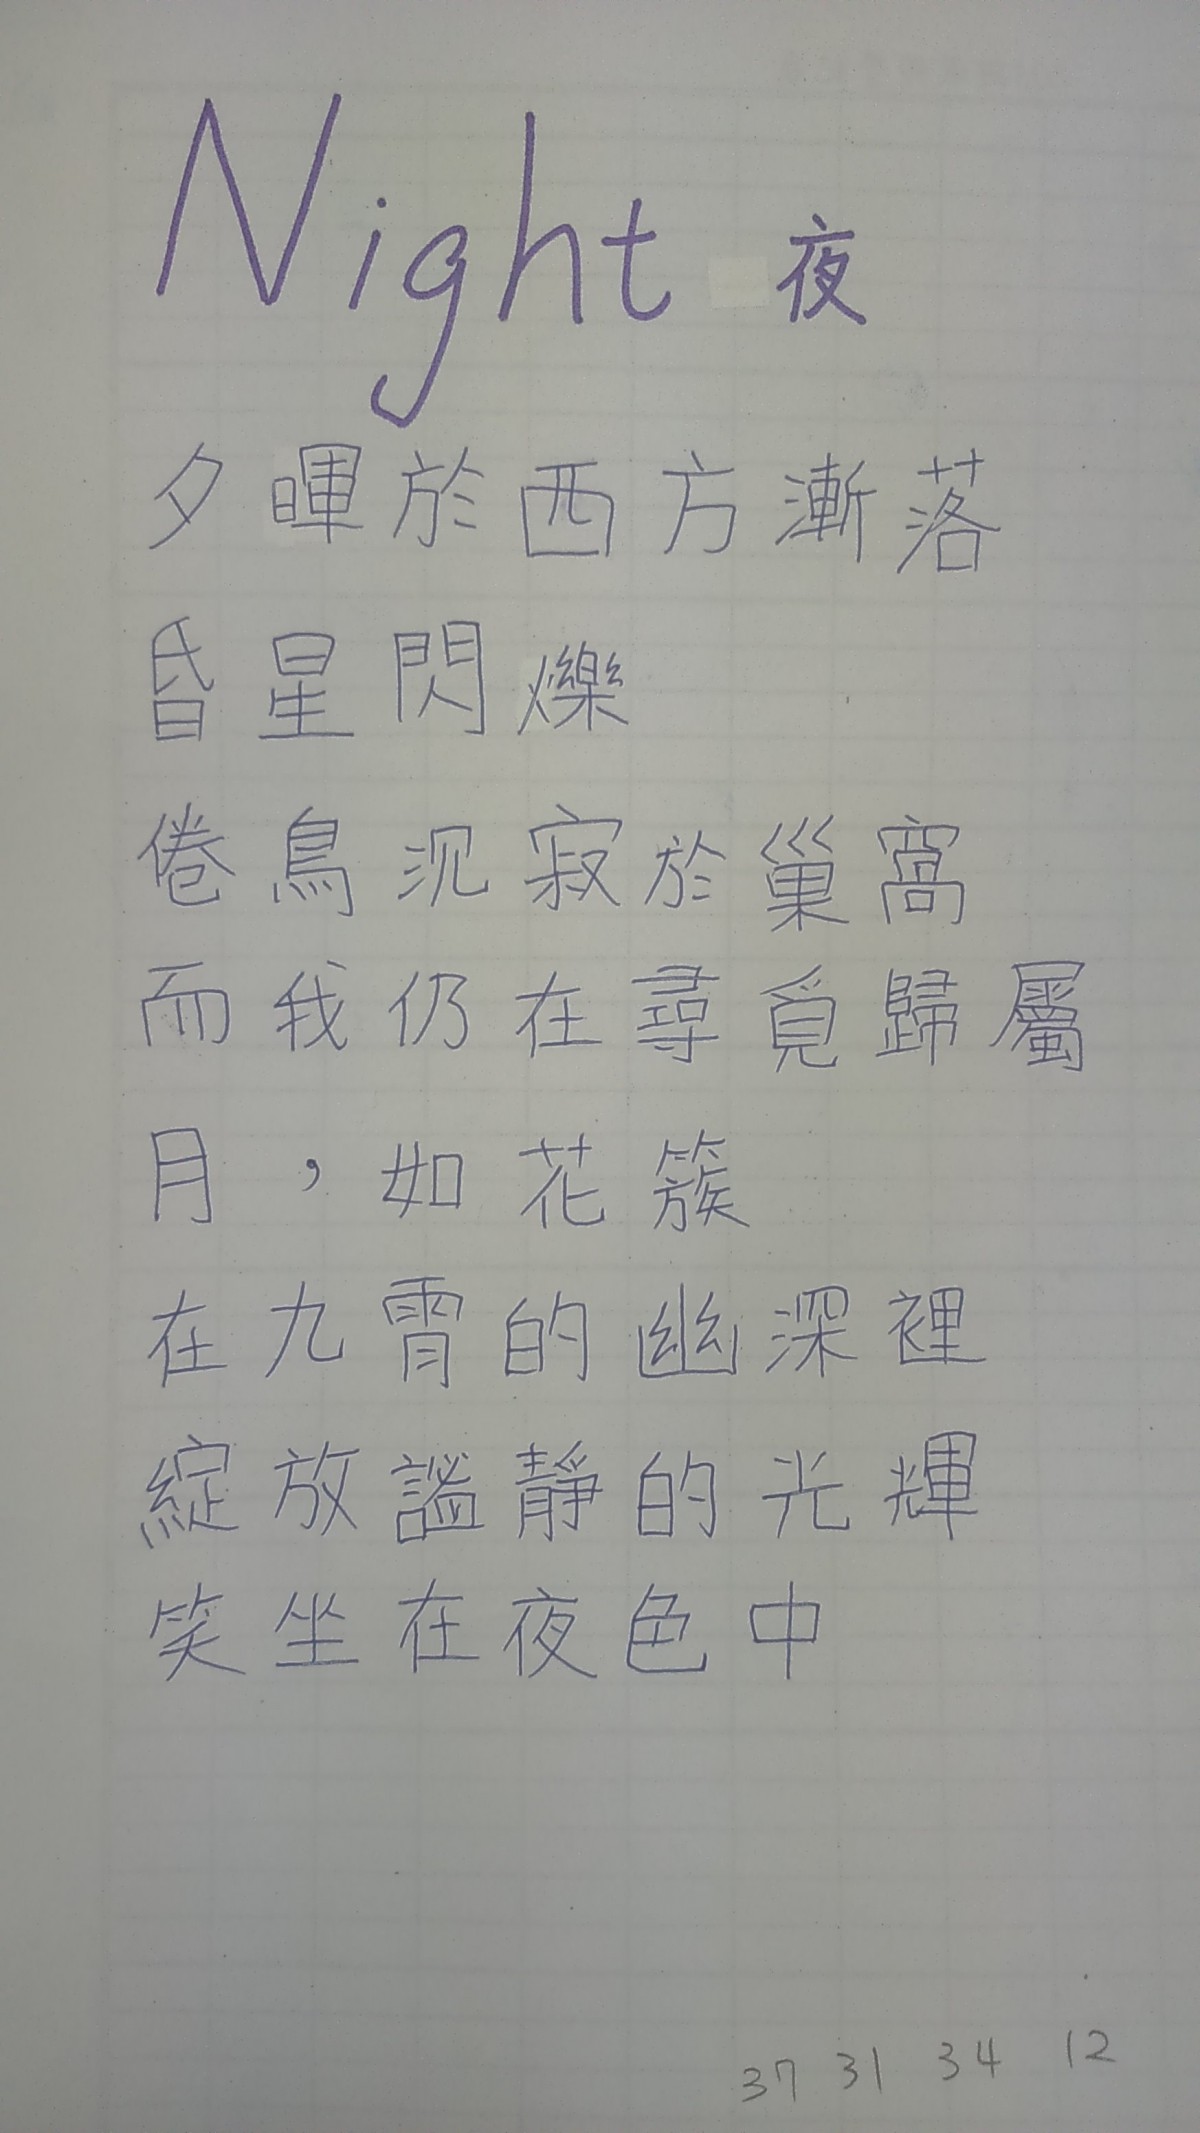 Night 夜
夕暉於西方漸落
昏星閃爍
倦鳥沉寂於巢窩
而我仍在尋覓歸屬
月，如花簇
在九霄的幽深裡
綻放謐靜的光輝
笑坐在夜色中
37 31 34 12